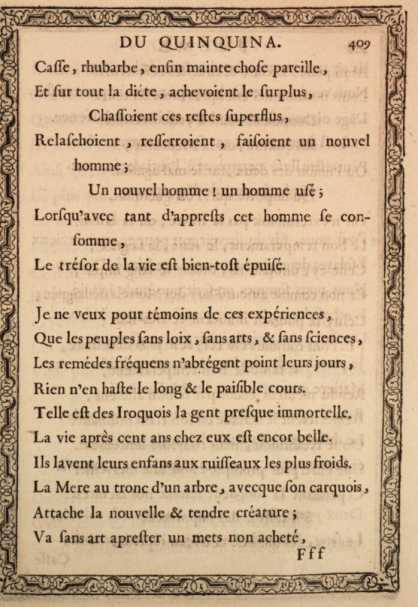 DU QUINQUINA. 409
Casse, rhubarbe, enfin mainte chose pareille,
Et sur tout la diéte, achevoient le surplus,
Chassoient ces restes superflus,
Relaschoient, resserroient, faisoient un nouvel
homme;
Un nouvel homme ! un homme usé;
Lorsqu'avec tant d'apprests cet homme se con-
somme,
Le trésor de la vie est bien-tost épuisé.
Je ne veux pour témoins de ces expériences,
Que les peuples sans loix, sans arts, & sans sciences,
Les remédes fréquens n'abrégent point leurs jours,
Rien n'en haste le long & le paisible cours.
Telle est des Iroquois la gent presque immortelle.
La vie après cent ans chez eux est encor belle.
Ils lavent leurs enfans aux ruisseaux les plus froids.
La Mere au tronc d'un arbre, avecque son carquois,
Attache la nouvelle & tendre créature;
Va sans art aprester un mets non acheté,
Fff